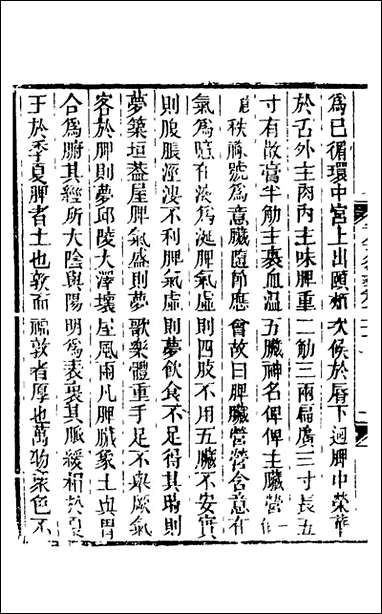 為巳循環中宮上出頤頰次候於唇下迴脾中榮華
於舌外主肉內主味脾重二觔三兩扁廣三寸長五
寸有散膏半觔主裹血溫五臟神名俾俾主臟營
秩祿號為意臟隨節應會故曰脾臟營營舍意在
氣為噫在液為涎脾氣虛則四肢不用五臟不安實
則腹脹涇溲不利脾氣虛則夢飲食不足得其時則
夢築垣蓋屋脾氣盛則夢歌樂體重手足不舉厥氣
客於脾則夢邱陵大澤壞屋風雨凡脾臟象土與胃
合為腑其經大陰與陽明為表裏其脈緩相於夏
王於季夏脾者土也敦而福敦者厚也萬物眾色不